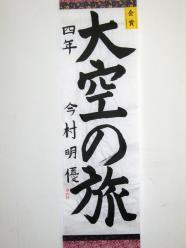 金賞
大空の旅
四年 今村明優